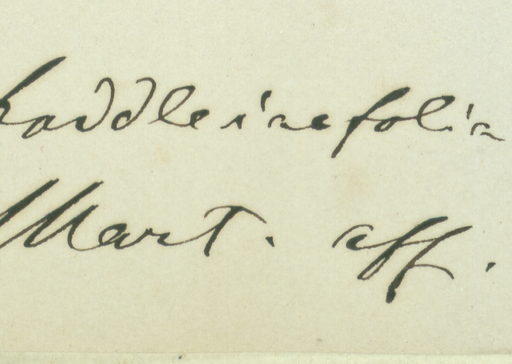 buddleiaefolia
Mart. aff.